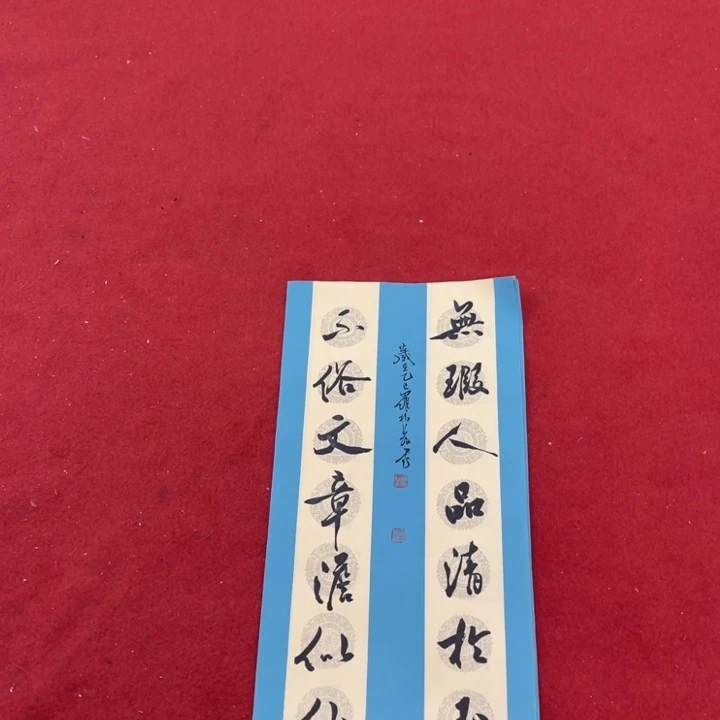 無瑕人品清於玉
不俗文章澹似仙
歲在乙巳